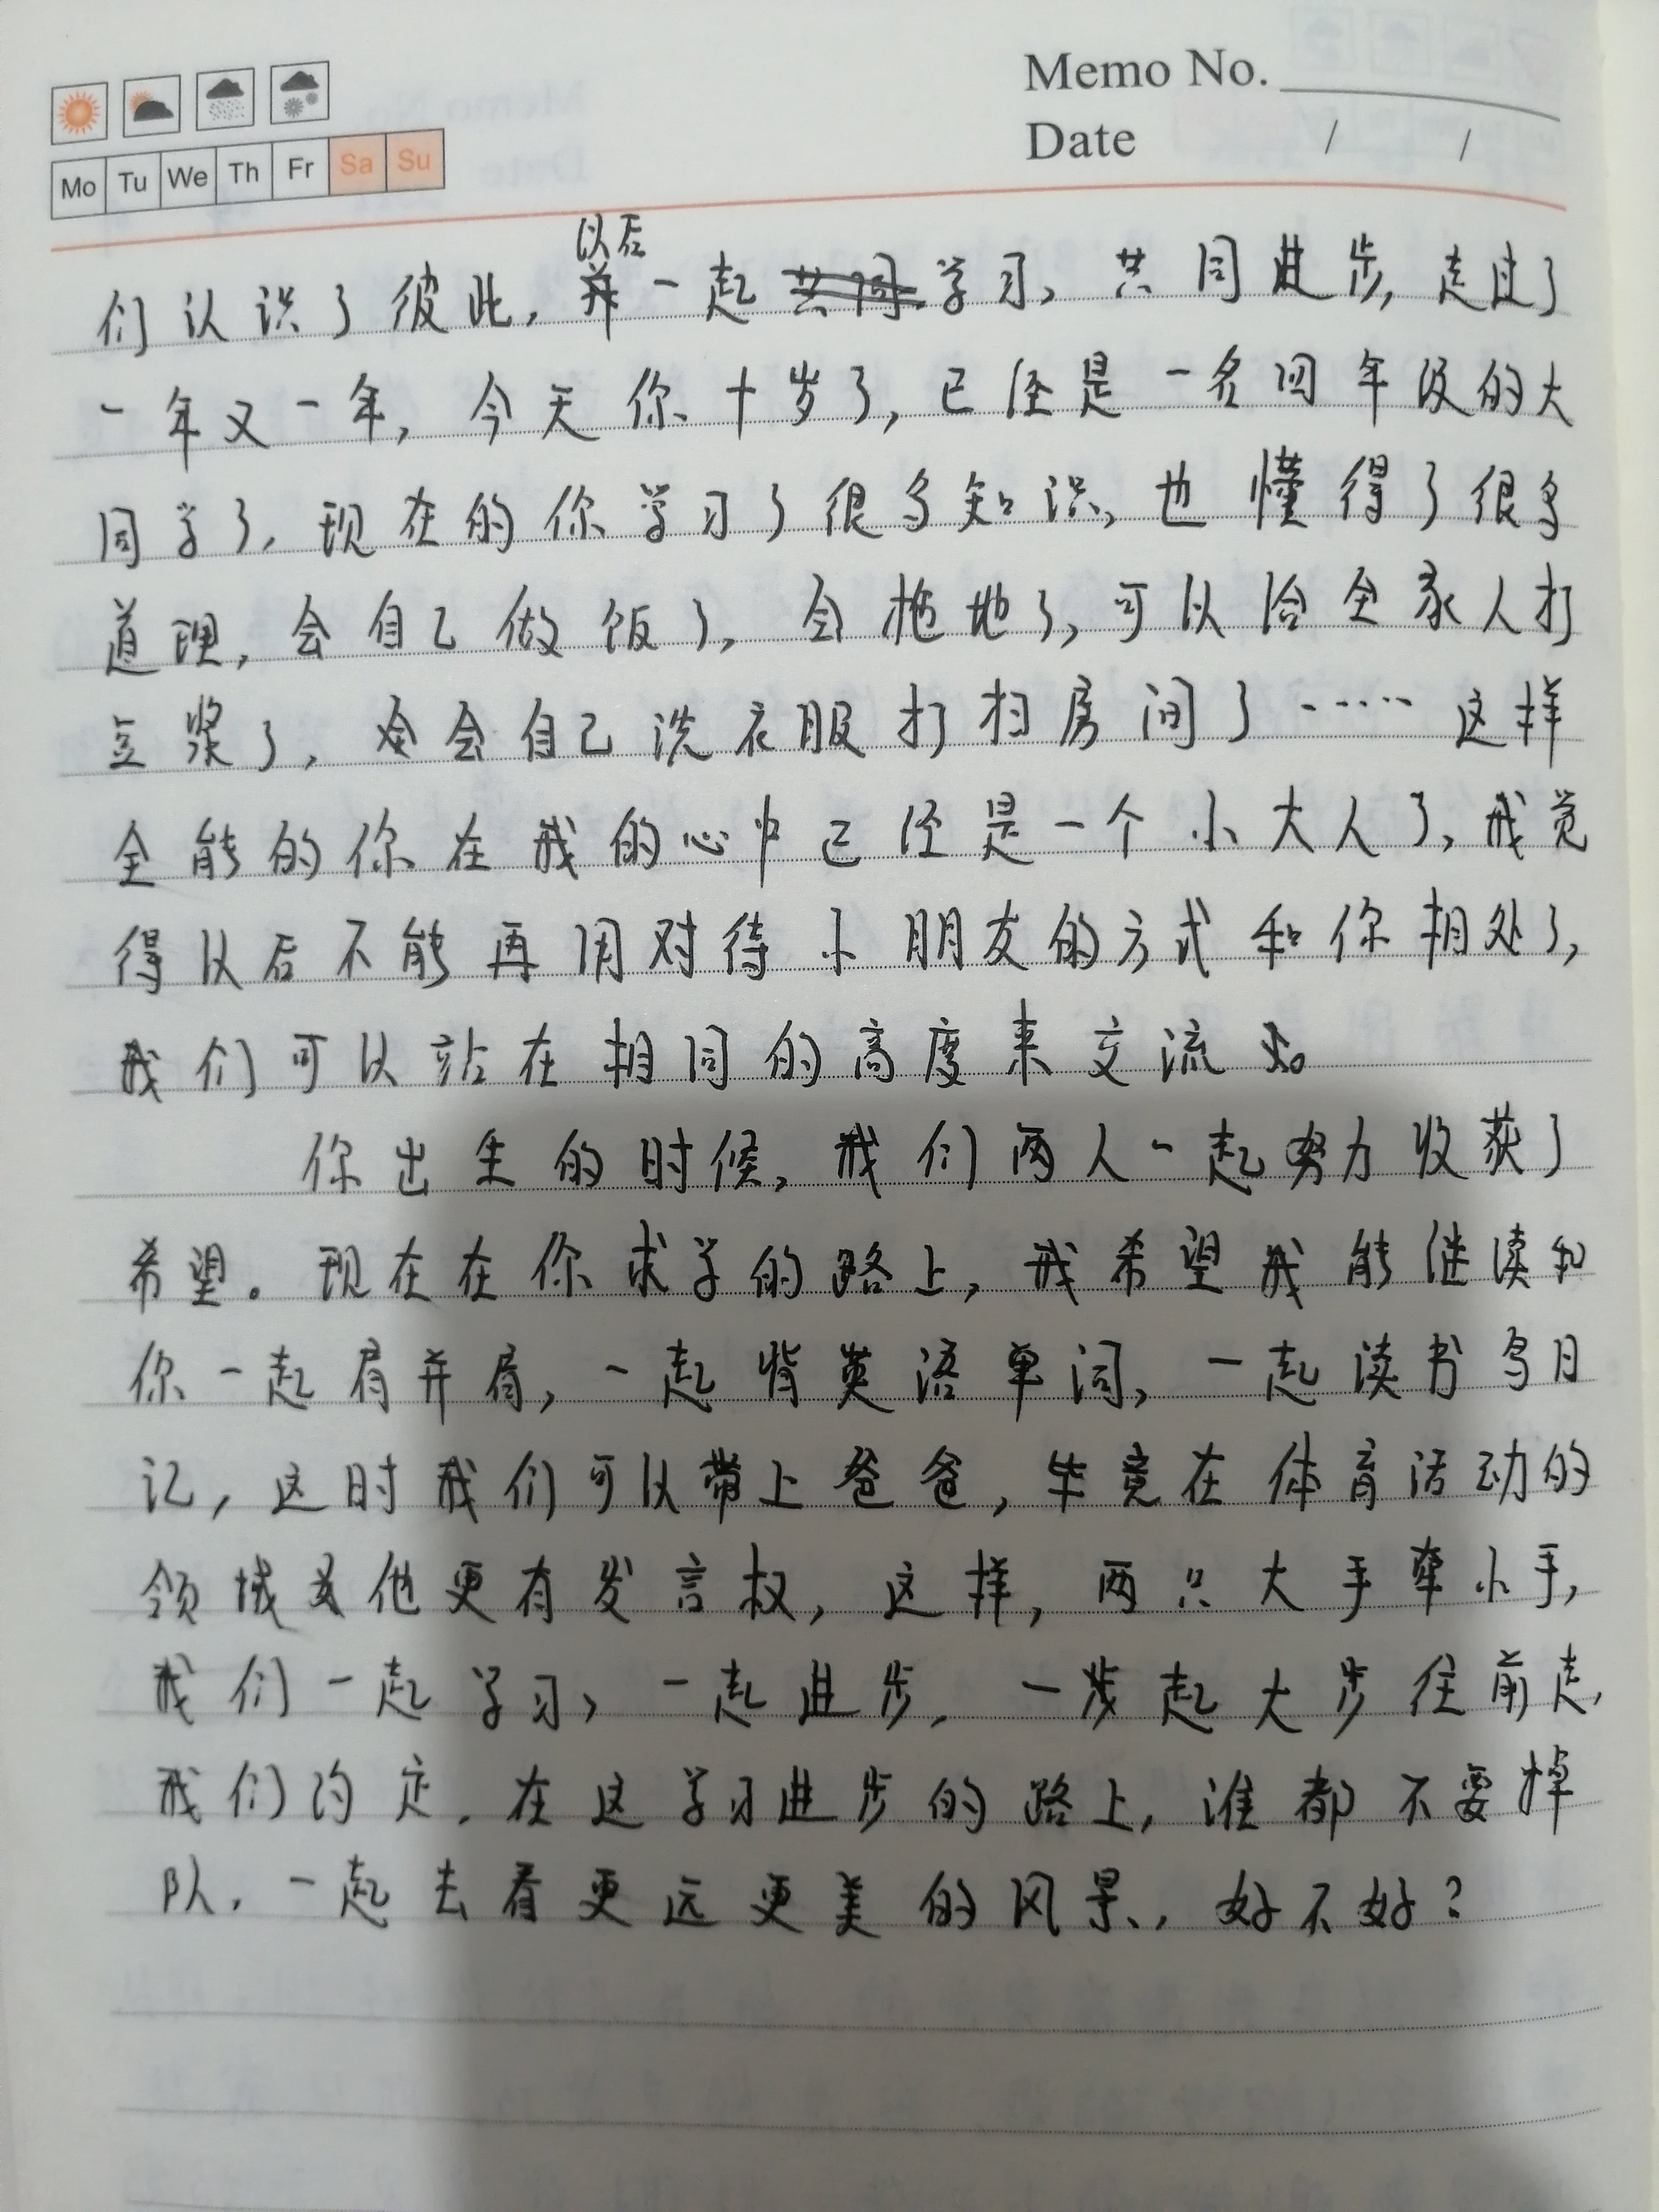 Memo No.
Date / /
Mo Tu We Th Fr Sa Su
以后
们认识了彼此,并一起学习、共同进步,走过了
一年又一年,今天你十岁了,已经是一名四年级的大
同学了,现在的你学习了很多知识,也懂得了很多
道理,会自己做饭了,会拖地了,可以给全家人打
豆浆了,会会自己洗衣服打扫房间了……这样
全能的你在我的心中已经是一个小大人了,我觉
得以后不能再用对待小朋友的方式和你相处了,
我们可以站在相同的高度来交流。
你出生的时候,我们两人一起努力收获了
希望。现在在你求学的路上,我希望我能继续和
你一起肩并肩,一起背英语单词,一起读书写日
记,这时我们可以带上爸爸,毕竟在体育活动的
领域他更有发言权,这样,两只大手牵小手,
我们一起学习,一起进步,一步起大步往前走,
我们约定,在这学习进步的路上,谁都不要掉
队,一起去看更远更美的风景,好不好?